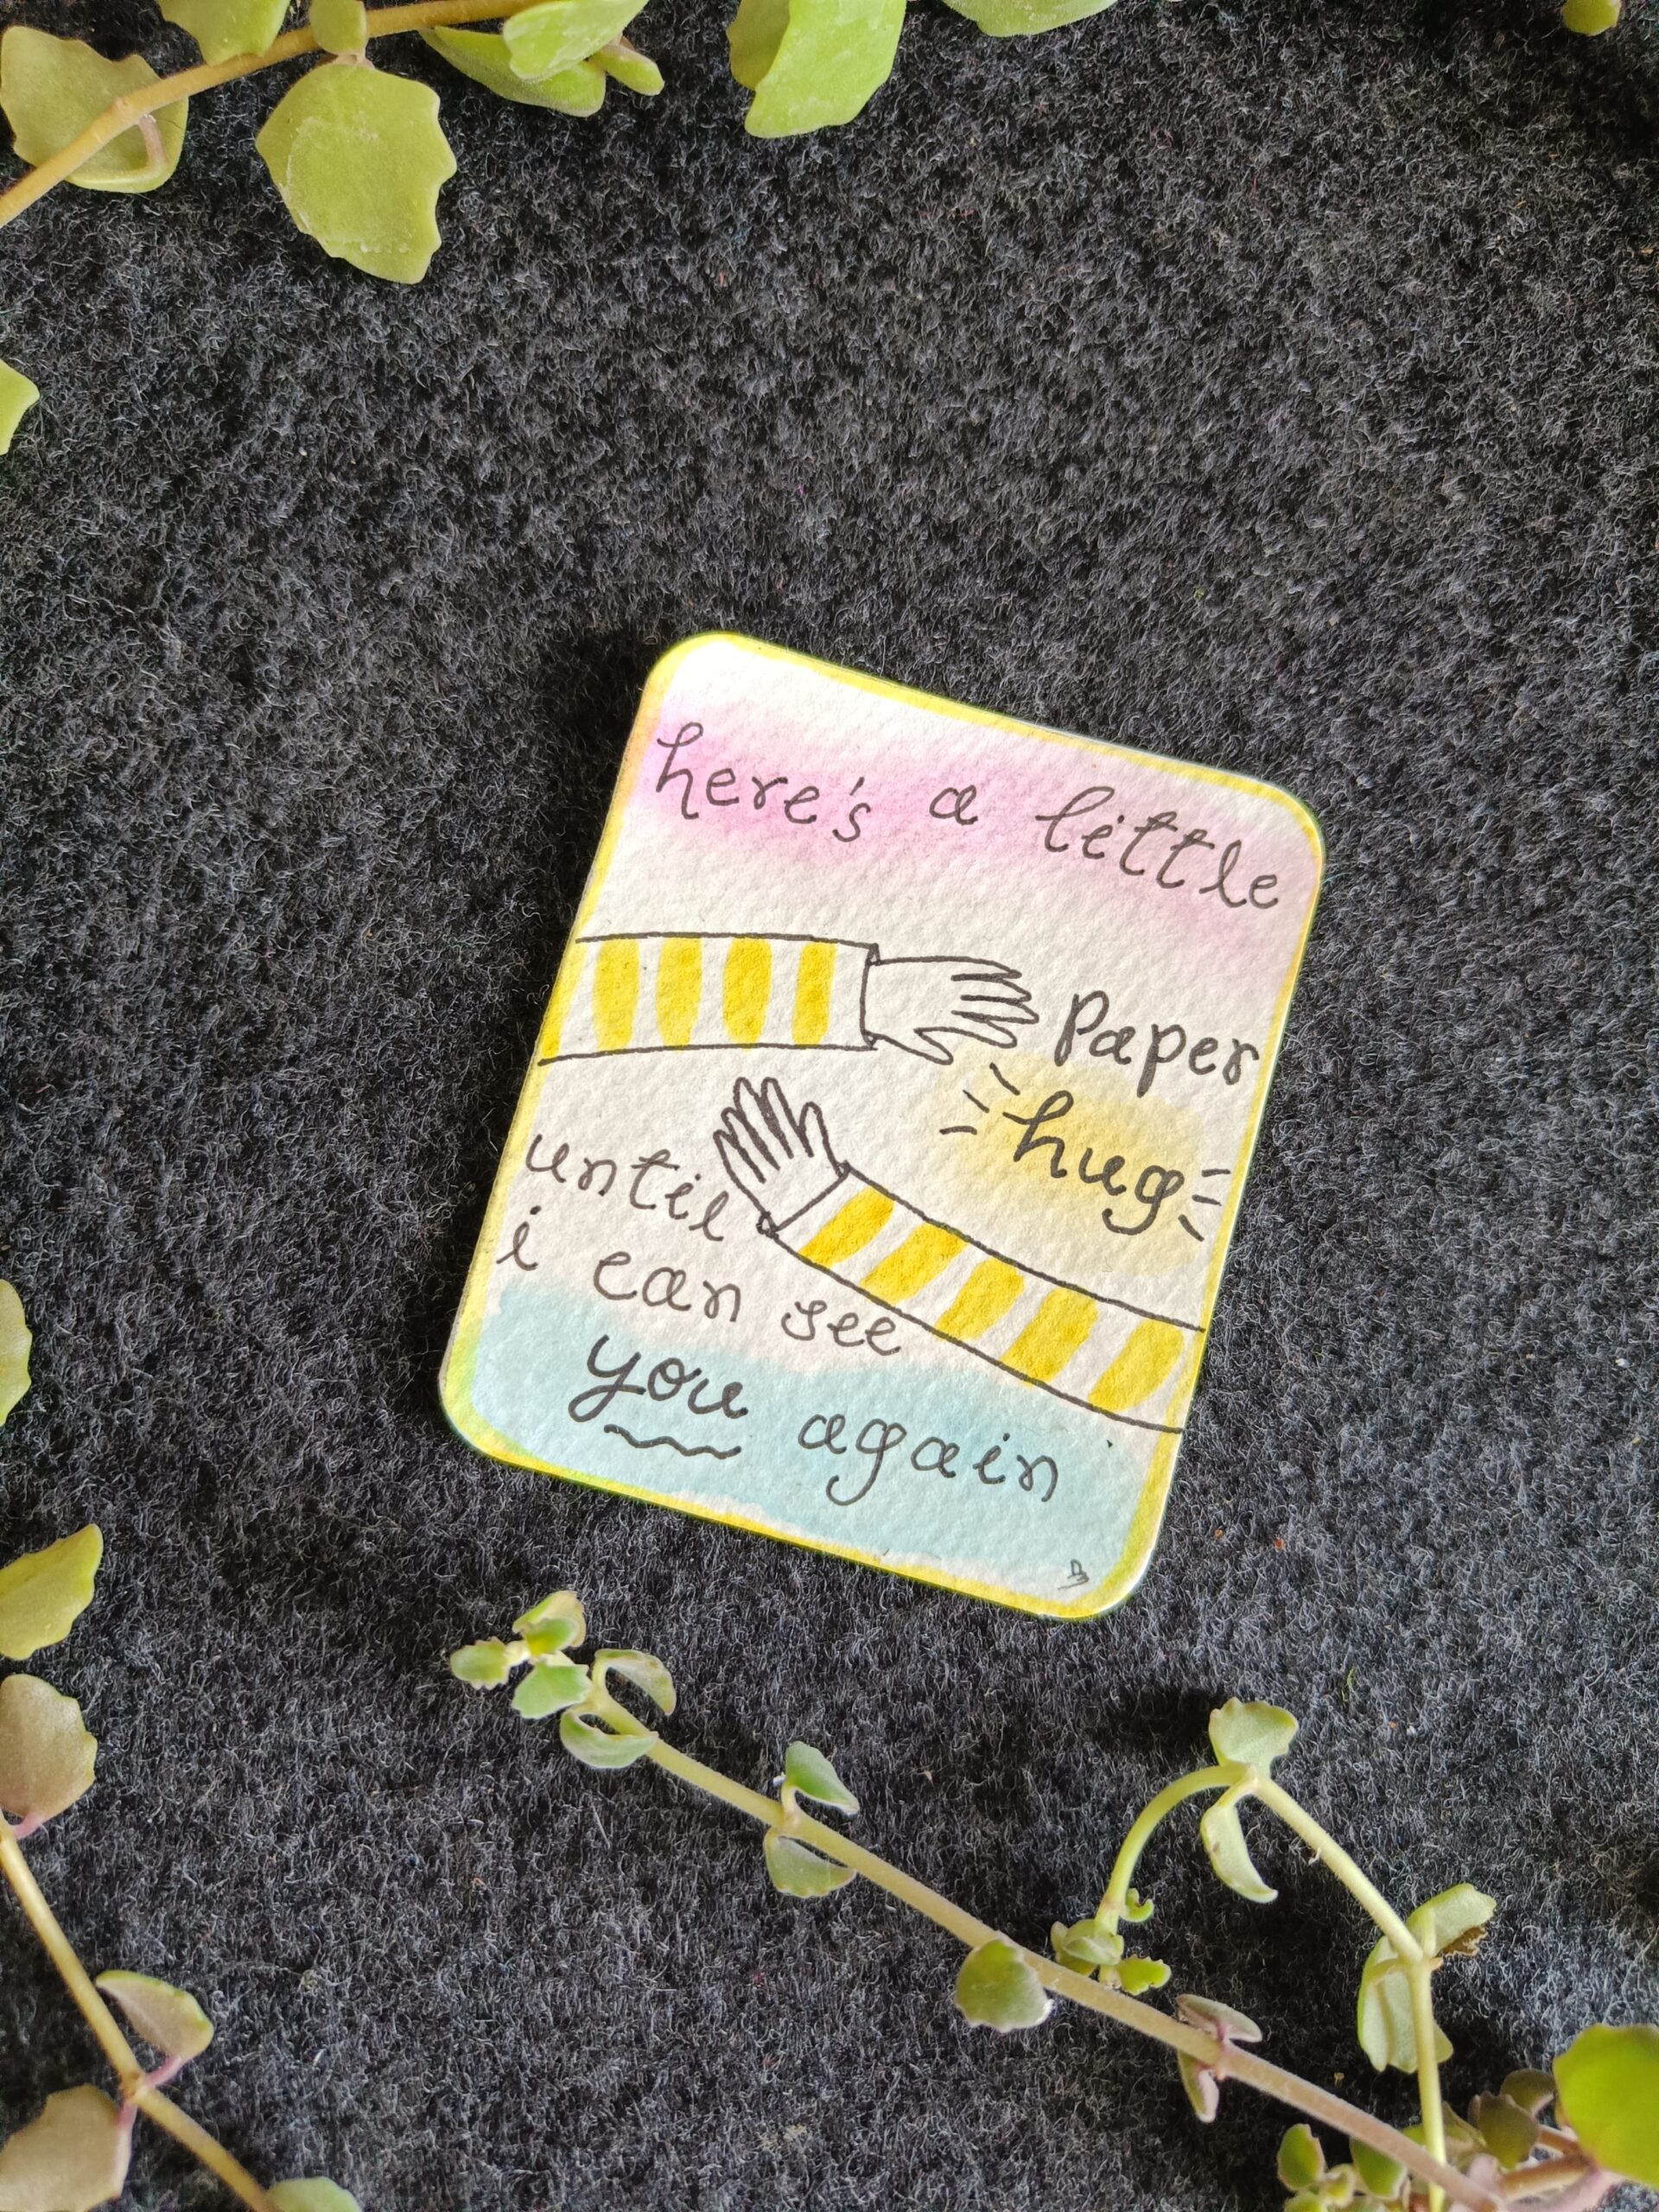 here's a little
Paper
hug
until
i can see
you again